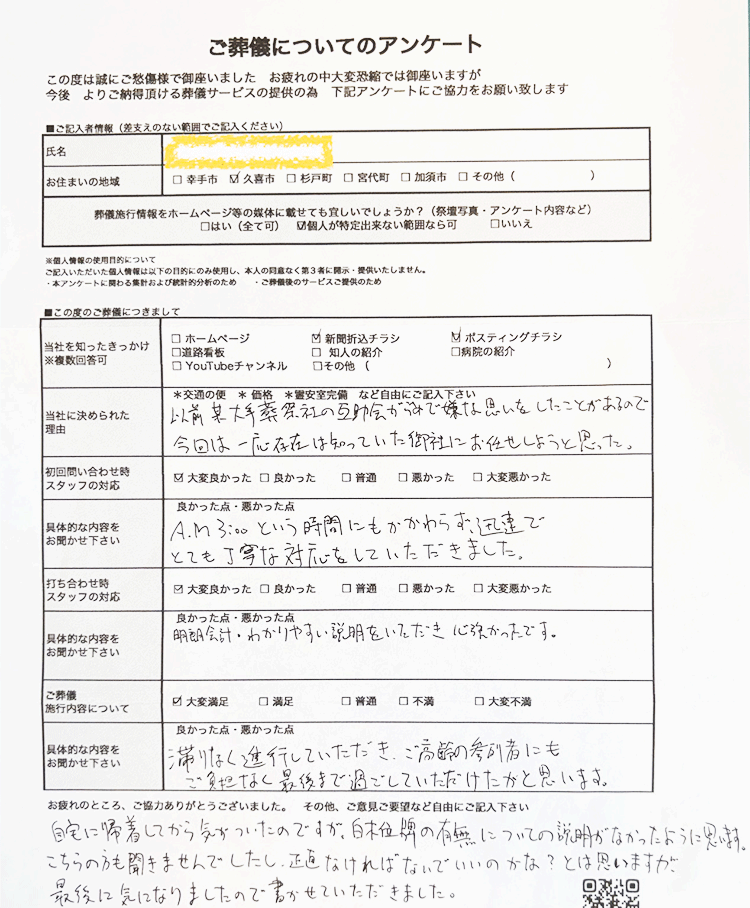 ご葬儀についてのアンケート
この度は誠にご愁傷様で御座いました　お疲れの中大変恐縮では御座いますが
今後　よりご納得頂ける葬儀サービスの提供の為　下記アンケートにご協力をお願い致します
■ご記入者情報（差支えのない範囲でご記入ください）
氏名
お住まいの地域 □ 幸手市 ☑ 久喜市 □ 杉戸町 □ 宮代町 □ 加須市 □ その他（　　　　　　）
葬儀施行情報をホームページ等の媒体に載せても宜しいでしょうか？（祭壇写真・アンケート内容など）
□はい（全て可） ☑個人が特定出来ない範囲なら可 □いいえ
※個人情報の使用目的について
ご記入いただいた個人情報は以下の目的にのみ使用し、本人の同意なく第３者に開示・提供いたしません。
・本アンケートに関わる集計および統計的分析のため　・ご葬儀後のサービスご提供のため
■この度のご葬儀につきまして
当社を知ったきっかけ
※複数回答可
□ ホームページ ☑ 新聞折込チラシ ☑ ポスティングチラシ
□道路看板 □ 知人の紹介 □病院の紹介
□ YouTubeチャンネル □その他（　　　　　　）
当社に決められた
理由
＊交通の便　＊ 価格　＊霊安室完備　など自由にご記入下さい
以前某大手葬祭社の互助会がらみで嫌な思いをしたことがあるので
今回は一応存在は知っていた御社にお任せしようと思った。
初回問い合わせ時
スタッフの対応
☑ 大変良かった □ 良かった □ 普通 □ 悪かった □ 大変悪かった
具体的な内容を
お聞かせ下さい
良かった点・悪かった点
A.M 3:00 という時間にもかかわらず、迅速で
とても丁寧な対応をしていただきました。
打ち合わせ時
スタッフの対応
☑ 大変良かった □ 良かった □ 普通 □ 悪かった □ 大変悪かった
具体的な内容を
お聞かせ下さい
良かった点・悪かった点
明朗会計・わかりやすい説明をいただき心強かったです。
ご葬儀
施行内容について
☑ 大変満足 □ 満足 □ 普通 □ 不満 □ 大変不満
具体的な内容を
お聞かせ下さい
良かった点・悪かった点
滞りなく進行していただき、ご高齢の参列者にも
ご負担なく最後まで過ごしていただけたかと思います。
お疲れのところ、ご協力ありがとうございました。　その他、ご意見ご要望など自由にご記入下さい
自宅に帰着してから気がついたのですが、白木位牌の有無についての説明がなかったように思います。
こちらの方も聞きませんでしたし、正直なければないでいいのかな？とは思いますが
最後に気になりましたので書かせていただきました。